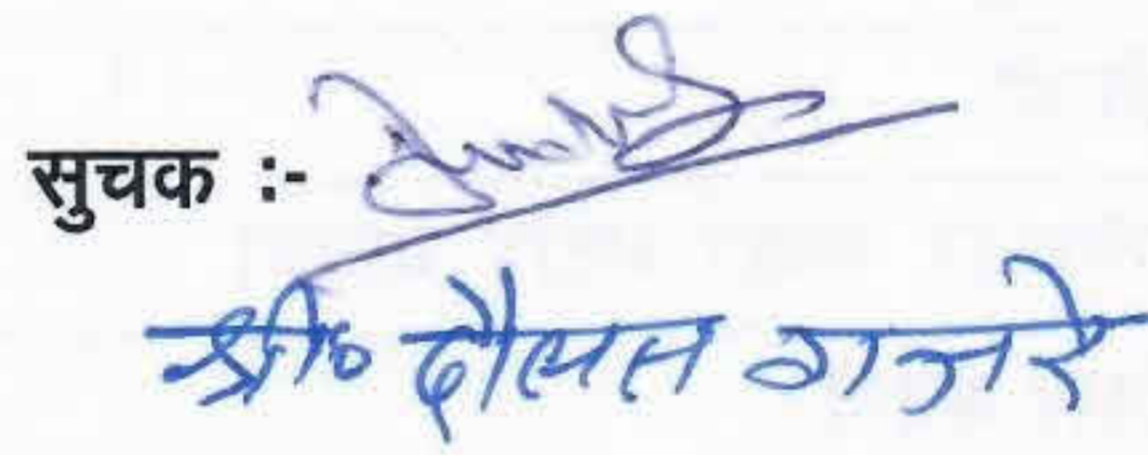 सुचक :-
श्री० दौलत गजरे